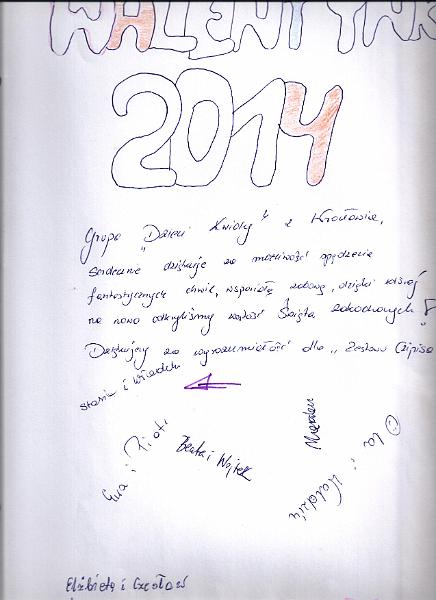 WALENTYNK
2014
Grupa "Dzieci Kwiaty" z
serdecznie dziękuje za możliwość spędzenia
fantastycznych chwil, wspaniałą zabawę, dzięki której
na nowo odkryliśmy wartość Święta zakochanych"
Dziękujemy za wyrozumiałość dla "Zestawu Czipisa
Stasia i
Ewa i Piotr
Beata i Wojtek
Elżbieta i Czesław